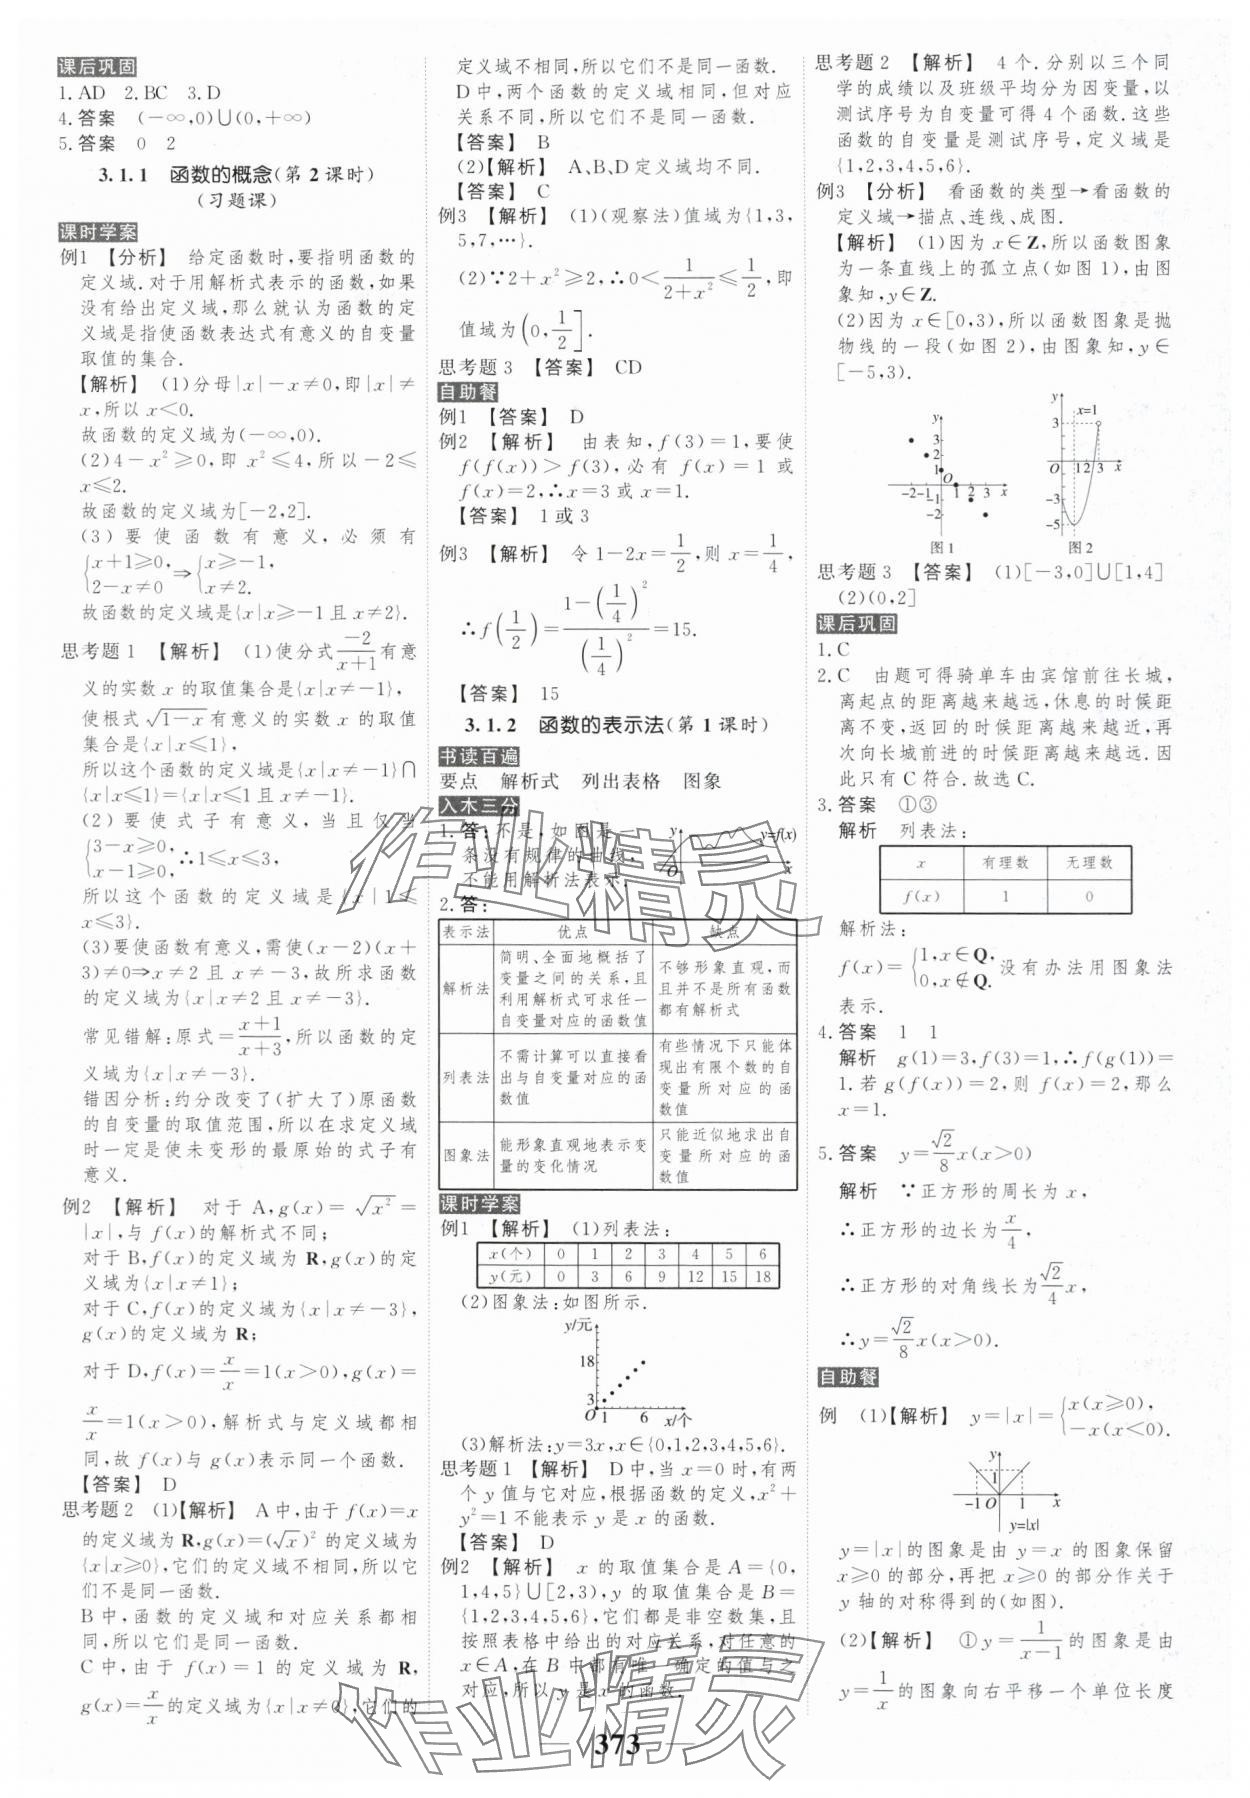 课后巩固
1. AD 2. BC 3. D
4. 答案 (-∞,0)∪(0,+∞)
5. 答案 0 2
3.1.1 函数的概念(第2课时)
(习题课)
课时学案
例1 【分析】 给定函数时,要指明函数的
定义域.对于用解析式表示的函数,如果
没有给出定义域,那么就认为函数的定
义域是指使函数表达式有意义的自变量
取值的集合.
【解析】 (1)分母|x|-x≠0,即|x|≠
x,所以 x<0.
故函数的定义域为(-∞,0).
(2)4-x²≥0,即 x²≤4,所以-2≤
x≤2.
故函数的定义域为[-2,2].
(3)要使函数有意义,必须有
{x+1≥0, 2-x≠0 ⇒ {x≥-1, x≠2.
故函数的定义域是{x|x≥-1且x≠2}.
思考题1 【解析】 (1)使分式 -2/(x+1) 有意
义的实数 x 的取值集合是{x|x≠-1},
使根式√(1-x)有意义的实数 x 的取值
集合是{x|x≤1},
所以这个函数的定义域是{x|x≠-1}∩
{x|x≤1}={x|x≤1且x≠-1}.
(2)要使式子有意义,当且仅当
{3-x≥0, x-1≥0 ∴1≤x≤3,
所以这个函数的定义域是{x|1≤
x≤3}.
(3)要使函数有意义,需使(x-2)(x+
3)≠0⇒x≠2且x≠-3,故所求函数
的定义域为{x|x≠2且x≠-3}.
常见错解:原式=(x+1)/(x+3),所以函数的定
义域为{x|x≠-3}.
错因分析:约分改变了(扩大了)原函数
的自变量的取值范围,所以在求定义域
时一定是使未变形的最原始的式子有
意义.
例2 【解析】 对于 A,g(x)=√(x²)=
|x|,与 f(x)的解析式不同;
对于 B,f(x)的定义域为 R,g(x)的定
义域为{x|x≠1};
对于 C,f(x)的定义域为{x|x≠-3},
g(x)的定义域为 R;
对于 D,f(x)=x/x=1(x>0),g(x)=
x/x=1(x>0),解析式与定义域都相
同,故 f(x)与 g(x)表示同一个函数.
【答案】 D
思考题2 (1)【解析】 A中,由于 f(x)=x
的定义域为 R,g(x)=(√x)² 的定义域为
{x|x≥0},它们的定义域不相同,所以它
们不是同一函数.
B中,函数的定义域和对应关系都相
同,所以它们是同一函数.
C中,由于 f(x)=1 的定义域为 R,
g(x)=x/x 的定义域为{x|x≠0},它们的
定义域不相同,所以它们不是同一函数.
D中,两个函数的定义域相同,但对应
关系不同,所以它们不是同一函数.
【答案】 B
(2)【解析】 A、B、D定义域均不同.
【答案】 C
例3 【解析】 (1)(观察法)值域为{1,3,
5,7,…}.
(2)∵2+x²≥2,∴0<1/(2+x²)≤1/2,即
值域为(0,1/2].
思考题3 【答案】 CD
自助餐
例1 【答案】 D
例2 【解析】 由表知,f(3)=1,要使
f(f(x))>f(3),必有 f(x)=1或
f(x)=2,∴x=3或x=1.
【答案】 1或3
例3 【解析】 令1-2x=1/2,则x=1/4,
∴f(1/2)=(1-(1/4)²)/(1/4)²=15.
【答案】 15
3.1.2 函数的表示法(第1课时)
书读百遍
要点 解析式 列出表格 图象
入木三分
1. 答:不是,如图是一
条没有规律的曲线,
不能用解析法表示.
y y=f(x)
O x
2. 答:
表示法 优点 缺点
解析法 简明、全面地概括了变量之间的关系,且利用解析式可求任一自变量对应的函数值 不够形象直观,而且并不是所有函数都有解析式
列表法 不需计算可以直接看出与自变量对应的函数值 有些情况下只能体现出有限个数的自变量所对应的函数值
图象法 能形象直观地表示变量的变化情况 只能近似地求出自变量所对应的函数值
课时学案
例1 【解析】 (1)列表法:
x(个) 0 1 2 3 4 5 6
y(元) 0 3 6 9 12 15 18
(2)图象法:如图所示.
y/元
18
3
O 1 6 x/个
(3)解析法:y=3x,x∈{0,1,2,3,4,5,6}.
思考题1 【解析】 D中,当x=0时,有两
个 y 值与它对应,根据函数的定义,x²+
y²=1不能表示 y 是 x 的函数.
【答案】 D
例2 【解析】 x 的取值集合是A={0,
1,4,5}∪[2,3),y 的取值集合是B=
{1,2,3,4,5,6},它们都是非空数集,且
按照表格中给出的对应关系,对任意的
x∈A,在B中都有唯一确定的值与之
对应,所以 y 是 x 的函数.
思考题2 【解析】 4个.分别以三个同
学的成绩以及班级平均分为因变量,以
测试序号为自变量可得4个函数.这些
函数的自变量是测试序号,定义域是
{1,2,3,4,5,6}.
例3 【分析】 看函数的类型→看函数的
定义域→描点、连线、成图.
【解析】 (1)因为x∈Z,所以函数图象
为一条直线上的孤立点(如图1),由图
象知,y∈Z.
(2)因为x∈[0,3),所以函数图象是抛
物线的一段(如图2),由图象知,y∈
[-5,3).
y
3
2
1
O
-2 -1 1 2 3 x
-1
-2
图1
y x=1
3
O 1 2 3 x
-3
-5
图2
思考题3 【答案】 (1)[-3,0]∪[1,4]
(2)(0,2]
课后巩固
1. C
2. C 由题可得骑单车由宾馆前往长城,
离起点的距离越来越远,休息的时候距
离不变,返回的时候距离越来越近,再
次向长城前进的时候距离越来越远.因
此只有C符合.故选C.
3. 答案 ①③
解析 列表法:
x 有理数 无理数
f(x) 1 0
解析法:
f(x)={1,x∈Q, 0,x∉Q. 没有办法用图象法
表示.
4. 答案 1 1
解析 g(1)=3,f(3)=1,∴f(g(1))=
1.若g(f(x))=2,则 f(x)=2,那么
x=1.
5. 答案 y=√2/8 x(x>0)
解析 ∵正方形的周长为x,
∴正方形的边长为x/4,
∴正方形的对角线长为√2/4 x,
∴y=√2/8 x(x>0).
自助餐
例 (1)【解析】 y=|x|={x(x≥0), -x(x<0).
y
1
-1 O 1 x
y=|x|
y=|x|的图象是由 y=x 的图象保留
x≥0的部分,再把x≤0的部分作关于
y 轴的对称得到的(如图).
(2)【解析】 ①y=1/(x-1) 的图象是由
y=1/x 的图象向右平移一个单位长度
373
作业精灵
作业精灵